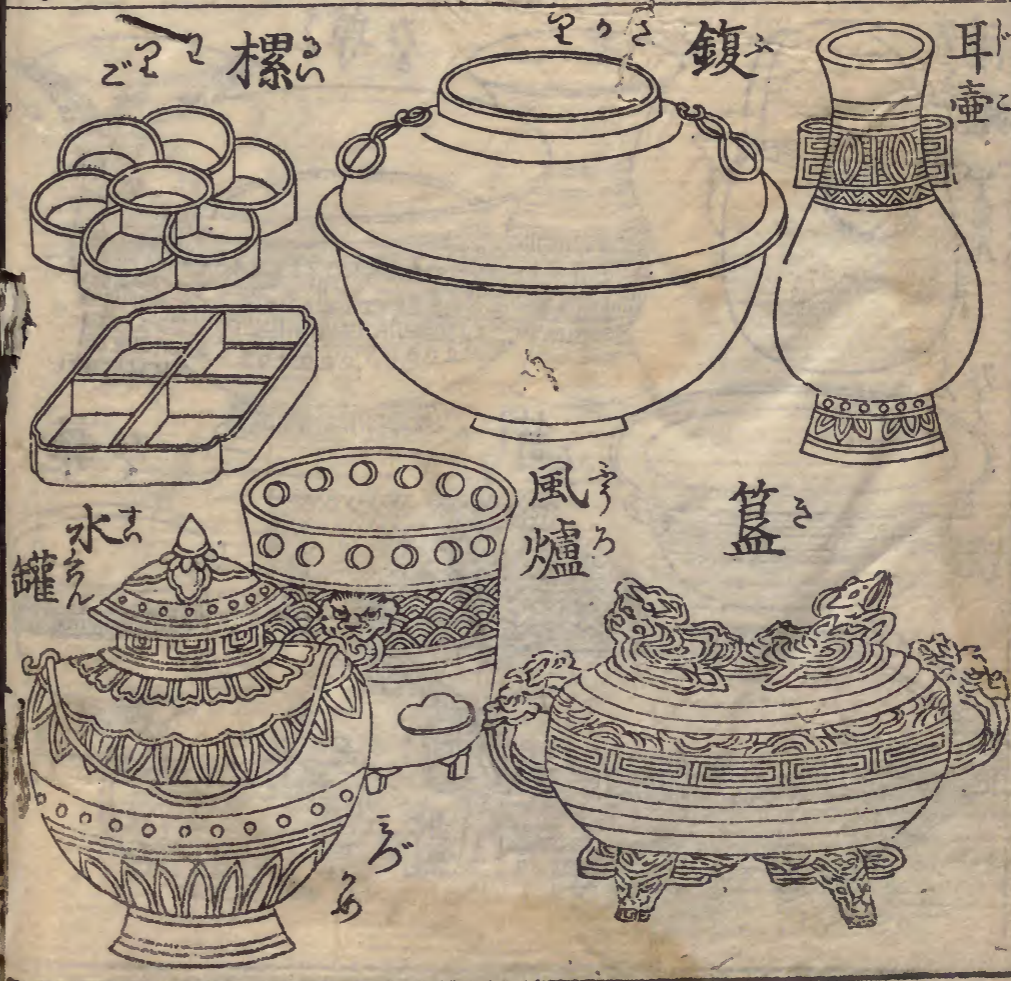 耳壺
じこ
鍑
ふ
さかり
樏
るい
わりご
簋
き
風爐
ふうろ
水罐
すいくわん
みづ
かめ